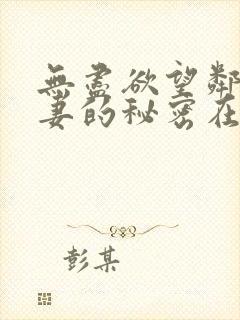 無盡欲望鄰
妻的秘密在
彭某